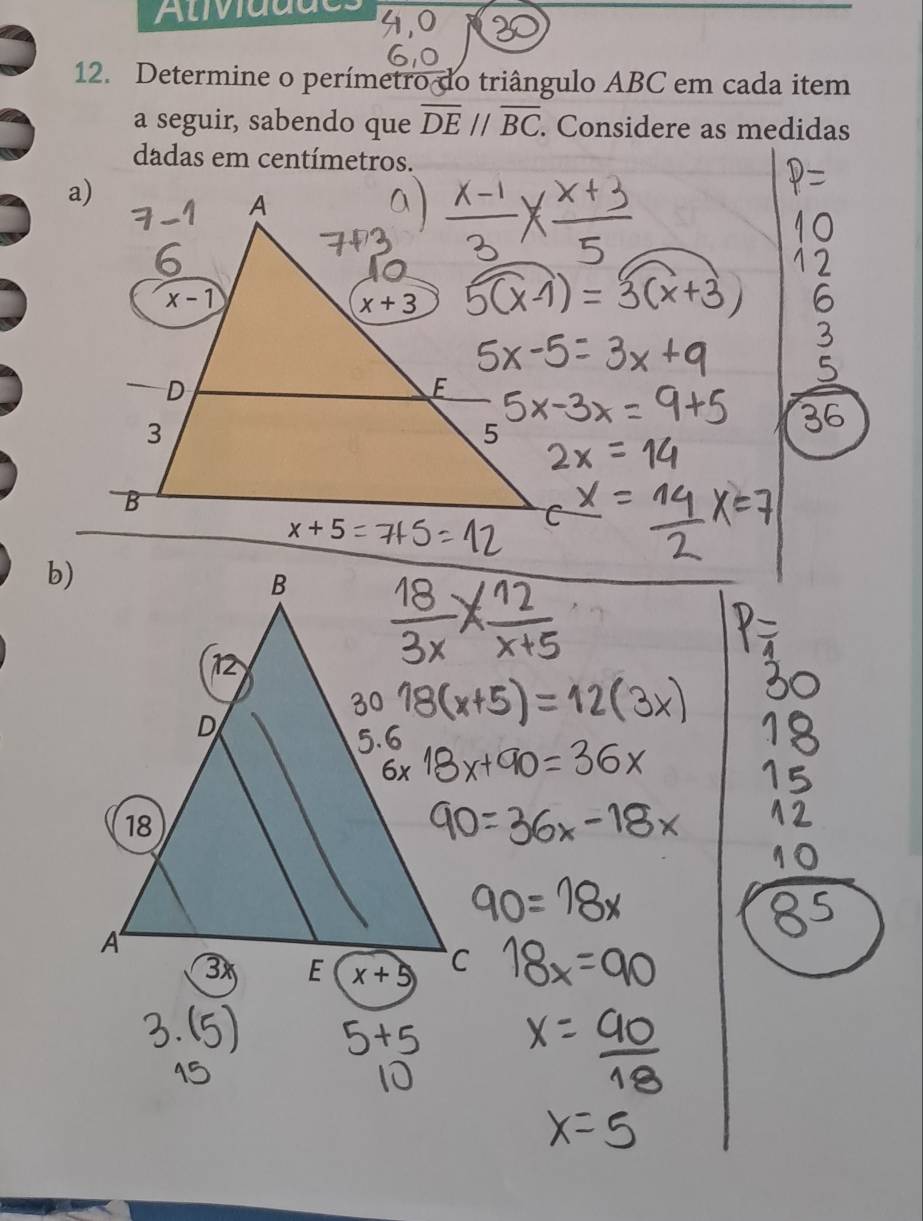 Atividades
4,0
6,0
30
12. Determine o perímetro do triângulo ABC em cada item
a seguir, sabendo que DE // BC. Considere as medidas
dadas em centímetros.
a)
7-1
6
x - 1
A
7+3
10
x + 3
D
E
3
5
B
C
x + 5 = 7+5 = 12
a) x-1/3 X x+3/5
5(x-1) = 3(x+3)
5x-5 = 3x+9
5x-3x = 9+5
2x = 14
x = 14/2 x=7
P=
10
12
6
3
5
36
b)
B
12
D
18
A
3x
E
x + 5
C
3.(5)
15
5+5
10
30
5.6
6x
18/3x X 12/x+5
18(x+5) = 12(3x)
18x+90 = 36x
90 = 36x - 18x
90 = 18x
18x = 90
x = 90/18
x = 5
P=
1
30
18
15
12
10
85